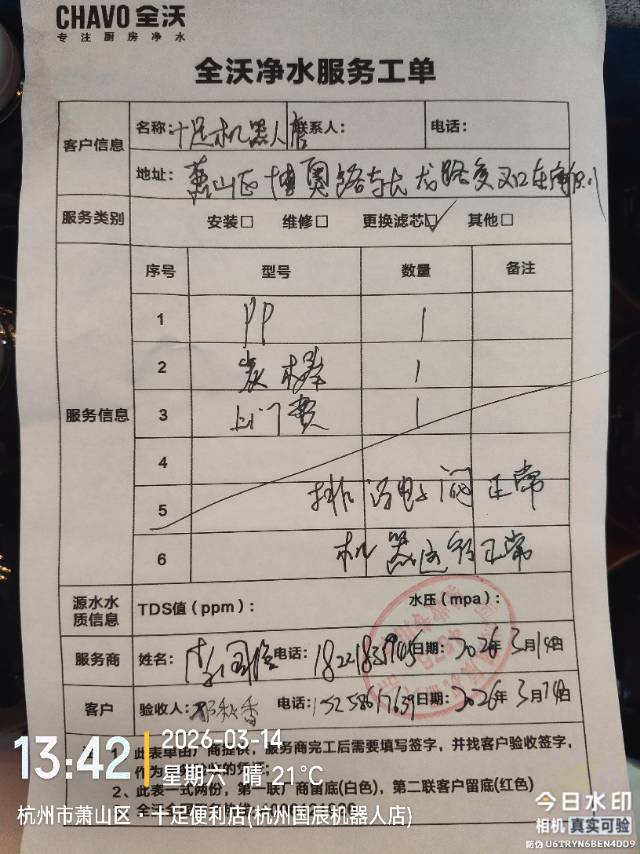 CHAVO 全沃
专注厨房净水
全沃净水服务工单
客户信息
名称：十足机器人店 联系人： 电话：
地址：萧山区博奥路与长龙路交叉口
服务类别 安装□ 维修□ 更换滤芯☑ 其他□
服务信息
序号 型号 数量 备注
1 PP 1
2 炭棒 1
3 上门费 1
4
5 排污电子阀正常
6 机器运行正常
源水水质信息 TDS值（ppm）： 水压（mpa）：
服务商 姓名： 电话： 日期：2026年3月14日
客户 验收人： 电话：15258617639 日期：2026年3月14日
1、此表单由厂商提供，服务商完工后需要填写签字，并找客户验收签字，
作为
2、此表一式两份，第一联厂商留底(白色)，第二联客户留底(红色)
13:42
2026-03-14
星期六 晴 21℃
杭州市萧山区·十足便利店(杭州国辰机器人店)
今日水印
相机 真实可验
防伪 U6TRYN6BEN4DD9